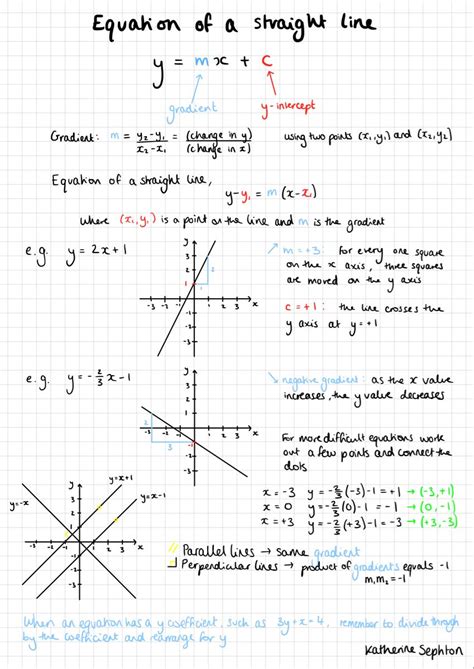 Equation of a straight line
y = mx + c
gradient
y-intercept
Gradient: m = y₂-y₁ = (change in y) using two points (x₁,y₁) and (x₂,y₂)
x₂-x₁ (change in x)
Equation of a straight line,
y-y₁ = m (x-x₁)
where (x₁,y₁) is a point on the line and m is the gradient
e.g. y = 2x+1
↗ m = +3: for every one square
on the x axis, three squares
are moved on the y axis
c = +1: the line crosses the
y axis at y = +1
y
3
2
1
-3 -2 -1 1 2 3 x
-1
-2
-3
2
1
e.g. y = -2/3 x - 1
↘ negative gradient: as the x value
increases, the y value decreases
For more difficult equations work
out a few points and connect the
dots
y
3
2
1
-3 -2 -1 1 2 3 x
-1
-2
-3
2
3
x = -3 y = -2/3(-3)-1 = +1 → (-3,+1)
x = 0 y = -2/3(0)-1 = -1 → (0,-1)
x = +3 y = -2/3(+3)-1 = -3 → (+3,-3)
y=-x
y=x+1
y=x-1
y
3
2
1
-3 -2 -1 1 2 3 x
-1
-2
-3
// Parallel lines → same gradient
Perpendicular lines → product of gradients equals -1
m₁m₂ = -1
When an equation has a y coefficient, such as 3y+x=4, remember to divide through
by the coefficient and rearrange for y
Katherine Sephton